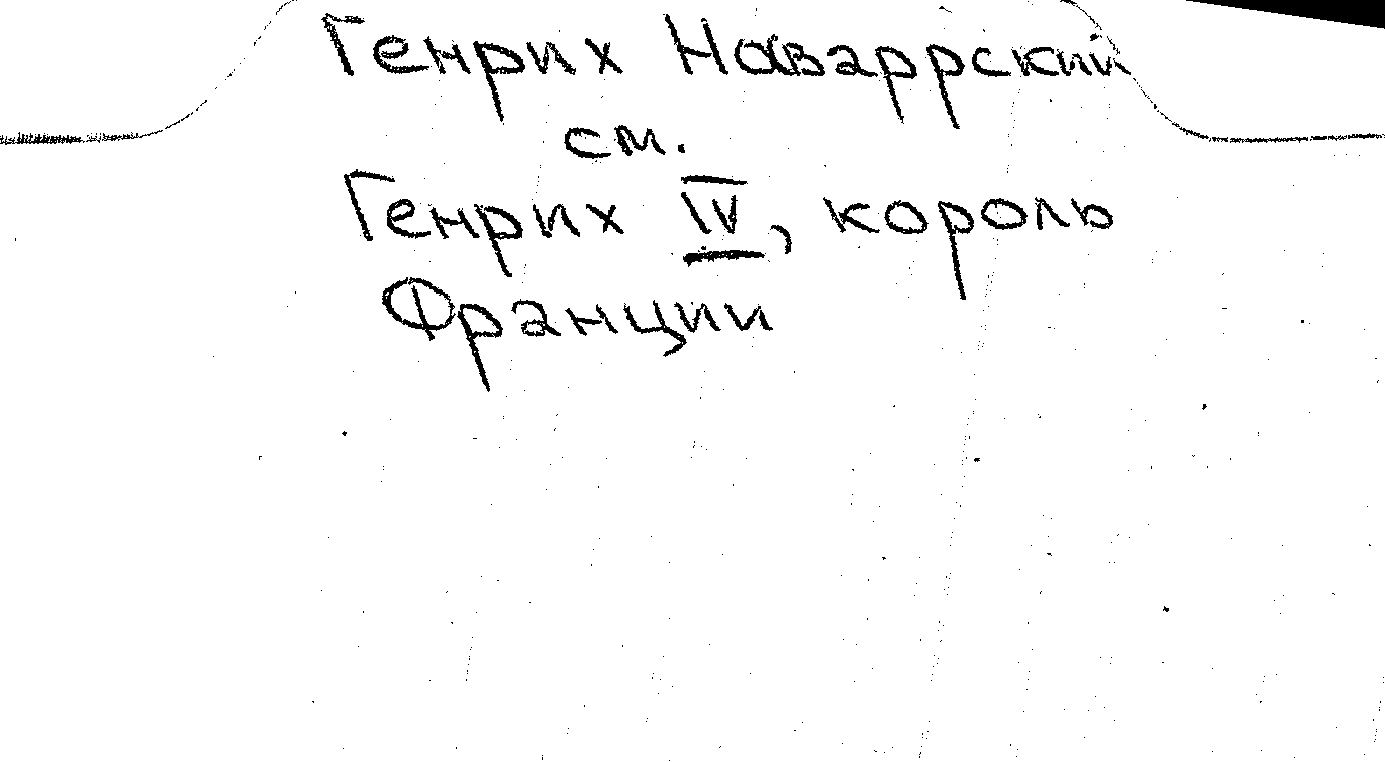 Генрих Наваррский
см.
Генрих IV, король
Франции